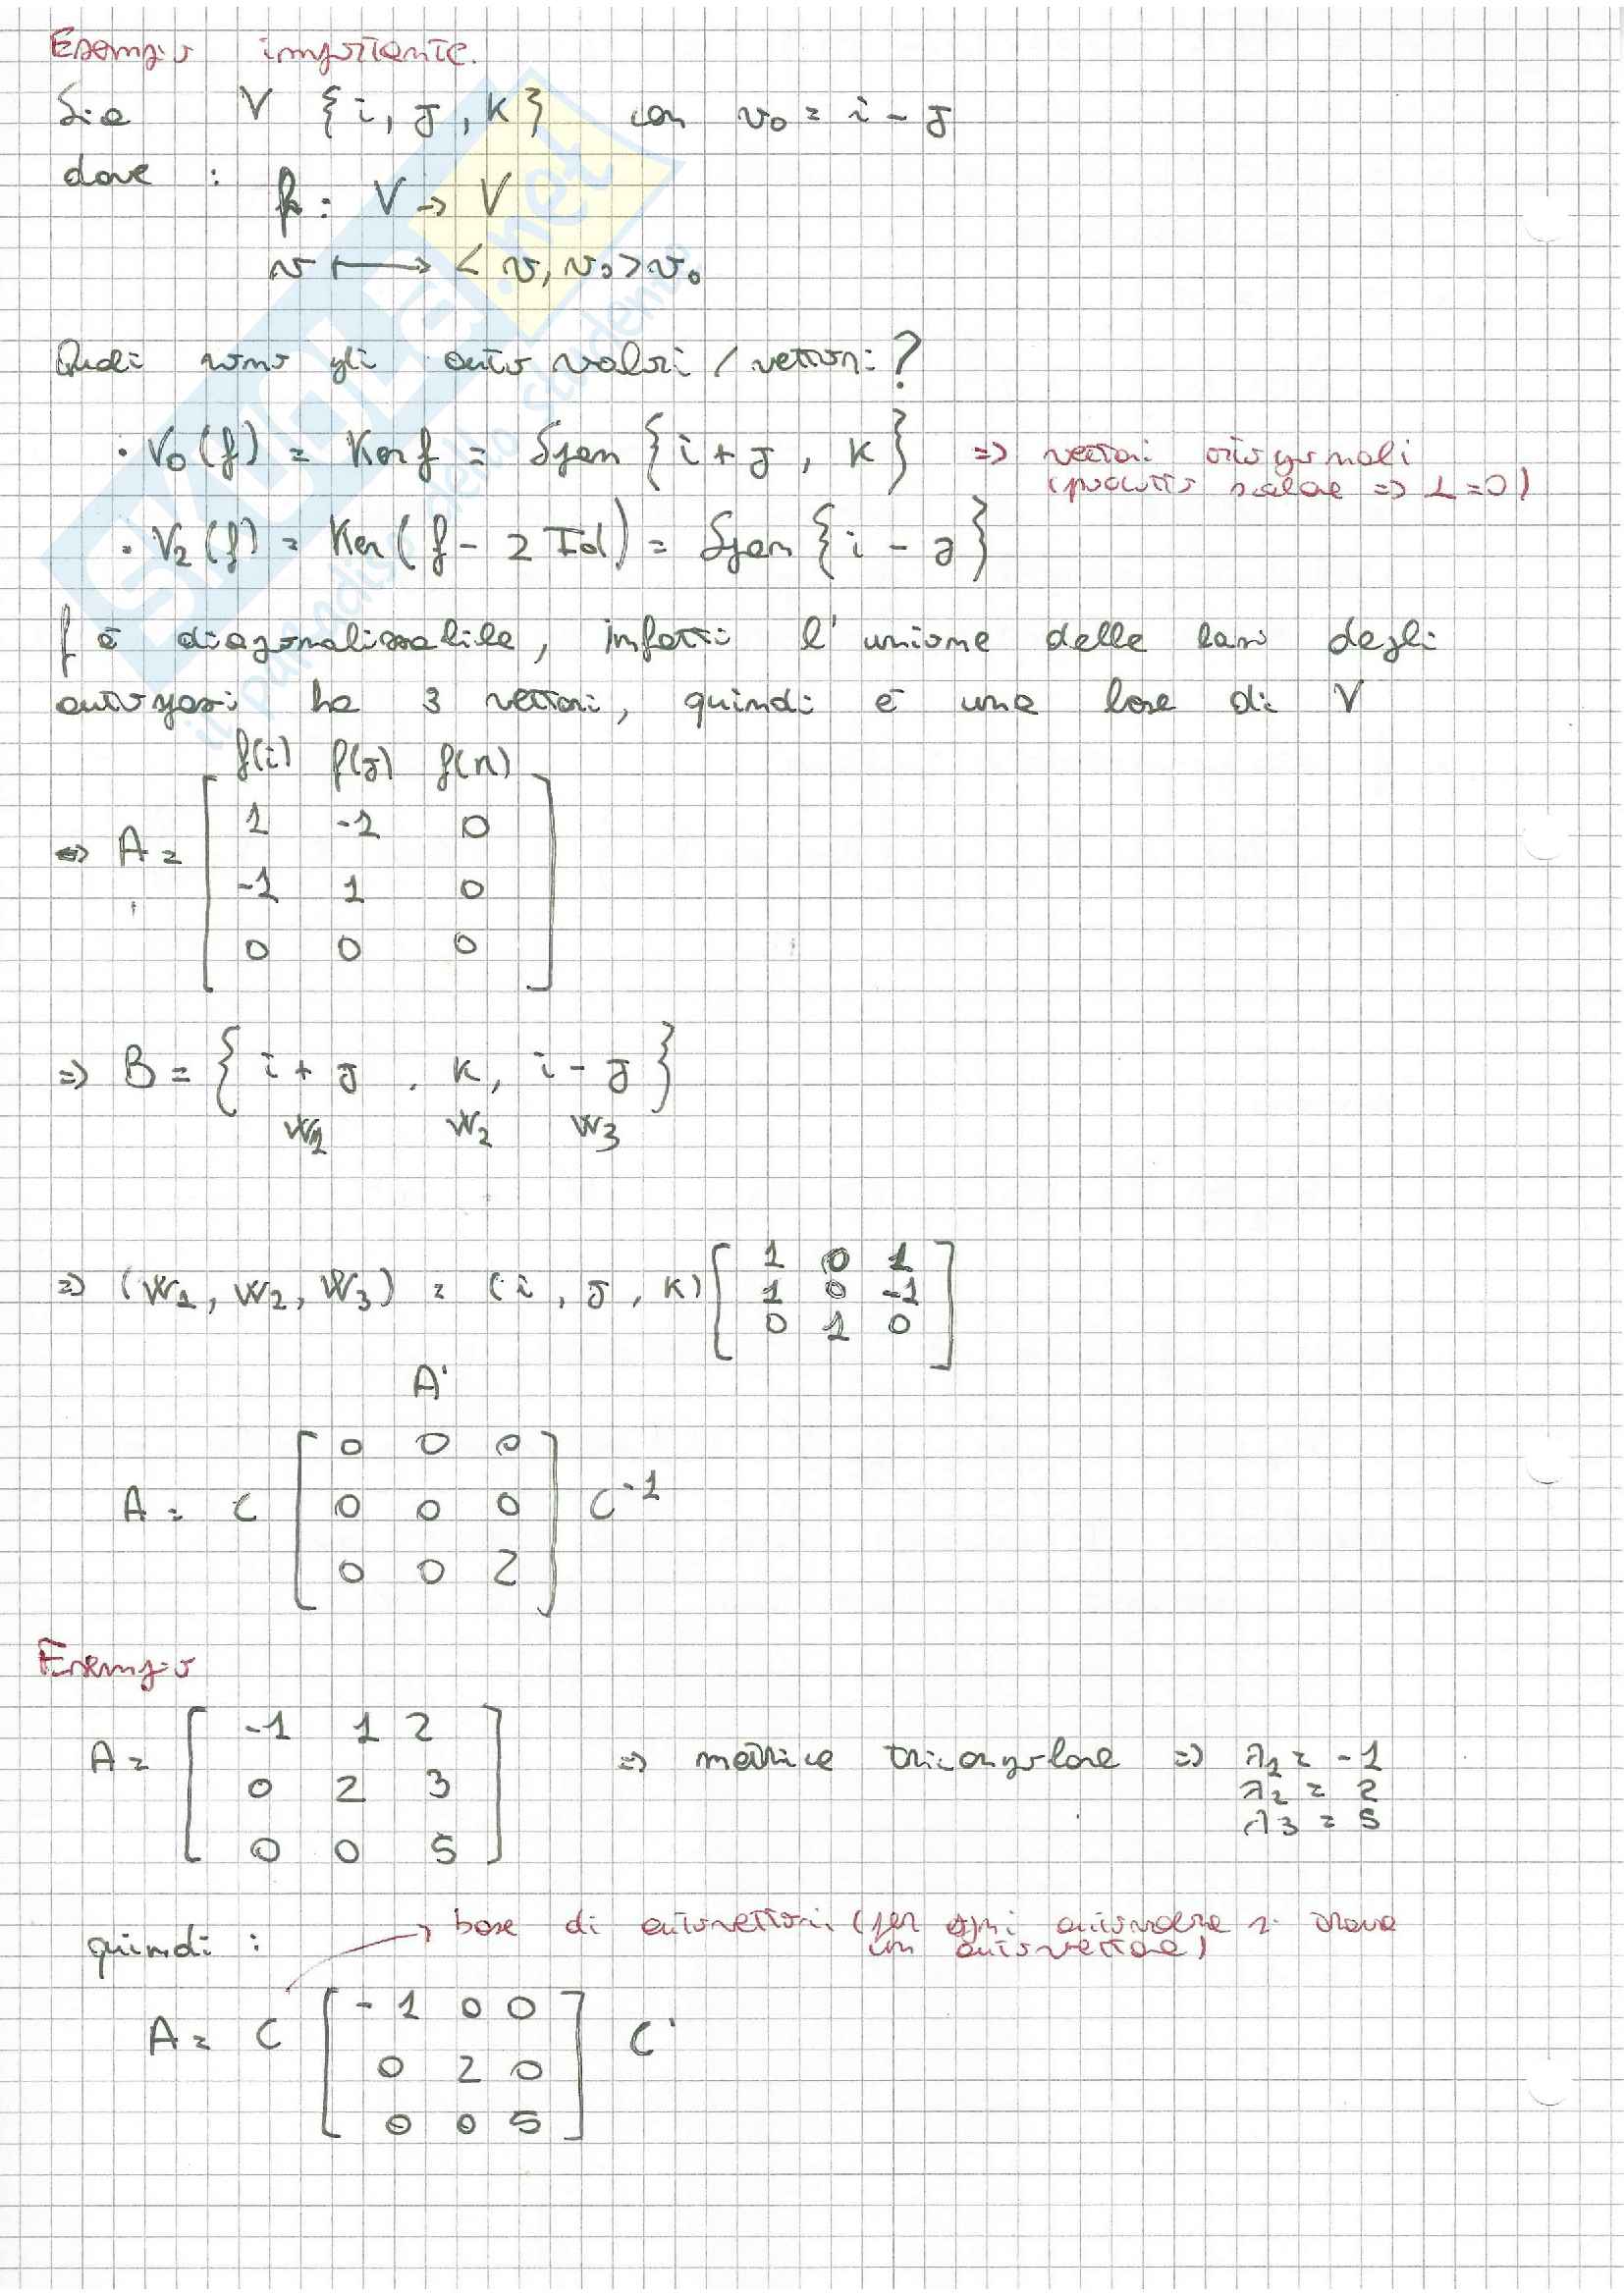 Esempio importante.
Sia V {i, j, k} con v₀ = i - j
dove : f: V → V
v ⟼ < v, v₀ > v₀
Quali sono gli auto valori / vettori?
· V₀(f) = Ker f = Span {i + j, k} ⇒ vettori ortogonali
(prodotto scalare ⇒ ⊥ = 0)
· V₂(f) = Ker(f - 2 Id) = Span {i - j}
f è diagonalizzabile, infatti l'unione delle basi degli
autospazi ha 3 vettori, quindi è una base di V
f(i) f(j) f(k)
⇒ A = [ 1 -1 0
-1 1 0
0 0 0 ]
⇒ B = { i + j , k, i - j }
w₁ w₂ w₃
⇒ (w₁, w₂, w₃) = (i, j, k) [ 1 0 1
1 0 -1
0 1 0 ]
A'
A = C [ 0 0 0
0 0 0
0 0 2 ] C⁻¹
Esempio
A = [ -1 1 2
0 2 3
0 0 5 ] ⇒ matrice triangolare ⇒ λ₁ = -1
λ₂ = 2
λ₃ = 5
quindi : → base di autovettori (per ogni autovalore si trova
un autovettore)
A = C [ -1 0 0
0 2 0
0 0 5 ] C'
SKUOLA.net
il paradiso dello studente